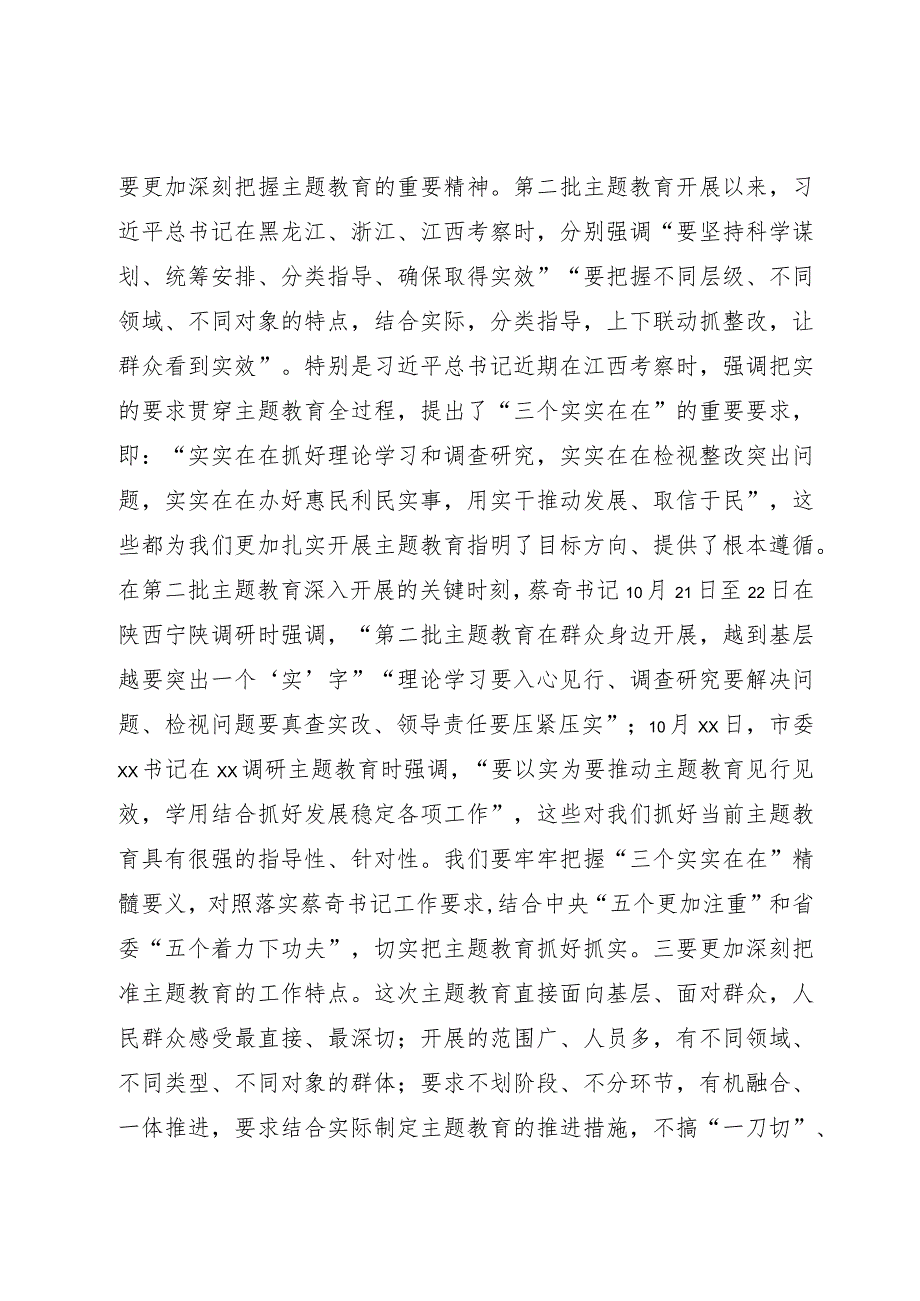 要更加深刻把握主题教育的重要精神。第二批主题教育开展以来，习
近平总书记在黑龙江、浙江、江西考察时，分别强调“要坚持科学谋
划、统筹安排、分类指导、确保取得实效”“要把握不同层级、不同
领域、不同对象的特点，结合实际，分类指导，上下联动抓整改，让
群众看到实效”。特别是习近平总书记近期在江西考察时，强调把实
的要求贯穿主题教育全过程，提出了“三个实实在在”的重要要求，
即：“实实在在抓好理论学习和调查研究，实实在在检视整改突出问
题，实实在在办好惠民利民实事，用实干推动发展、取信于民”，这
些都为我们更加扎实开展主题教育指明了目标方向、提供了根本遵循。
在第二批主题教育深入开展的关键时刻，蔡奇书记10月21日至22日在
陕西宁陕调研时强调，“第二批主题教育在群众身边开展，越到基层
越要突出一个‘实’字”“理论学习要入心见行、调查研究要解决问
题、检视问题要真查实改、领导责任要压紧压实”；10月xx日，市委
xx书记在xx调研主题教育时强调，“要以实为要推动主题教育见行见
效，学用结合抓好发展稳定各项工作”，这些对我们抓好当前主题教
育具有很强的指导性、针对性。我们要牢牢把握“三个实实在在”精
髓要义，对照落实蔡奇书记工作要求,结合中央“五个更加注重”和省
委“五个着力下功夫”，切实把主题教育抓好抓实。三要更加深刻把
准主题教育的工作特点。这次主题教育直接面向基层、面对群众，人
民群众感受最直接、最深切；开展的范围广、人员多，有不同领域、
不同类型、不同对象的群体；要求不划阶段、不分环节，有机融合、
一体推进，要求结合实际制定主题教育的推进措施，不搞“一刀切”、